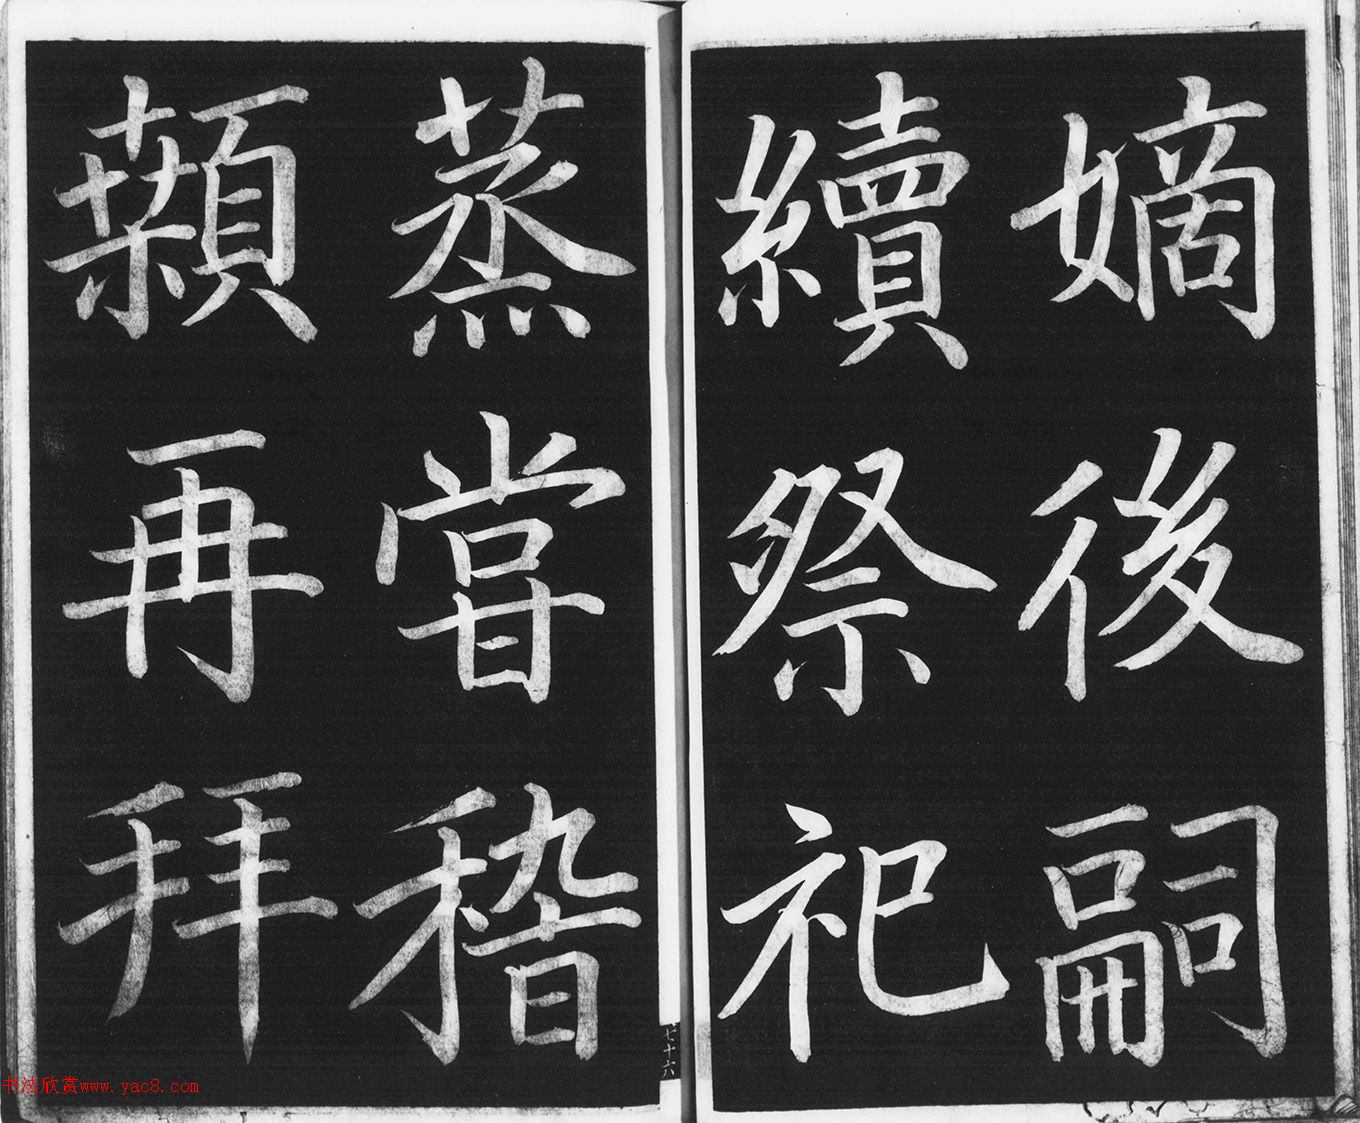 嫡後嗣
續祭祀
蒸甞稽
顙再拜
七十六
书法欣赏www.yac8.com